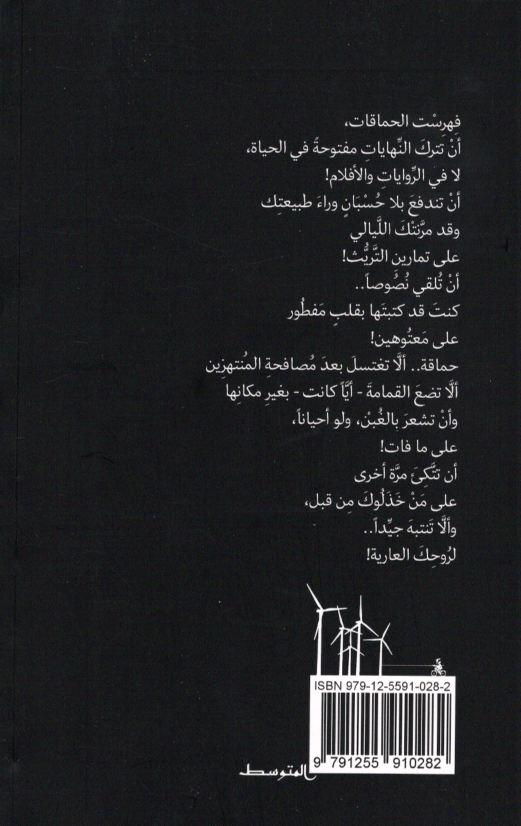 فِهرِسْت الحماقات،
أنْ تتركَ النِّهاياتِ مفتوحةً في الحياة،
لا في الرِّواياتِ والأفلام!
أنْ تندفعَ بلا حُسْبَانٍ وراءَ طبيعتِك
وقد مرَّنتْكَ اللَّيالي
على تمارينِ التَّريُّث!
أنْ تُلقي نُصُوصاً..
كنتَ قد كتبتَها بقلبٍ مَفطُور
على مَعتُوهين!
حماقة.. ألَّا تغتسلَ بعدَ مُصافحةِ المُنتهزِين
ألَّا تضعَ القمامةَ - أيَّاً كانت - بغيرِ مكانِها
وأنْ تشعرَ بِالغُبْن، ولو أحياناً،
على ما فات!
أن تتَّكِئَ مرَّة أخرى
على مَنْ خَذَلُوكَ مِن قبل،
وألَّا تَنتبهَ جيِّداً..
لرُوحِكَ العارية!
ISBN 979-12-5591-028-2
9 791255 910282
المتوسط